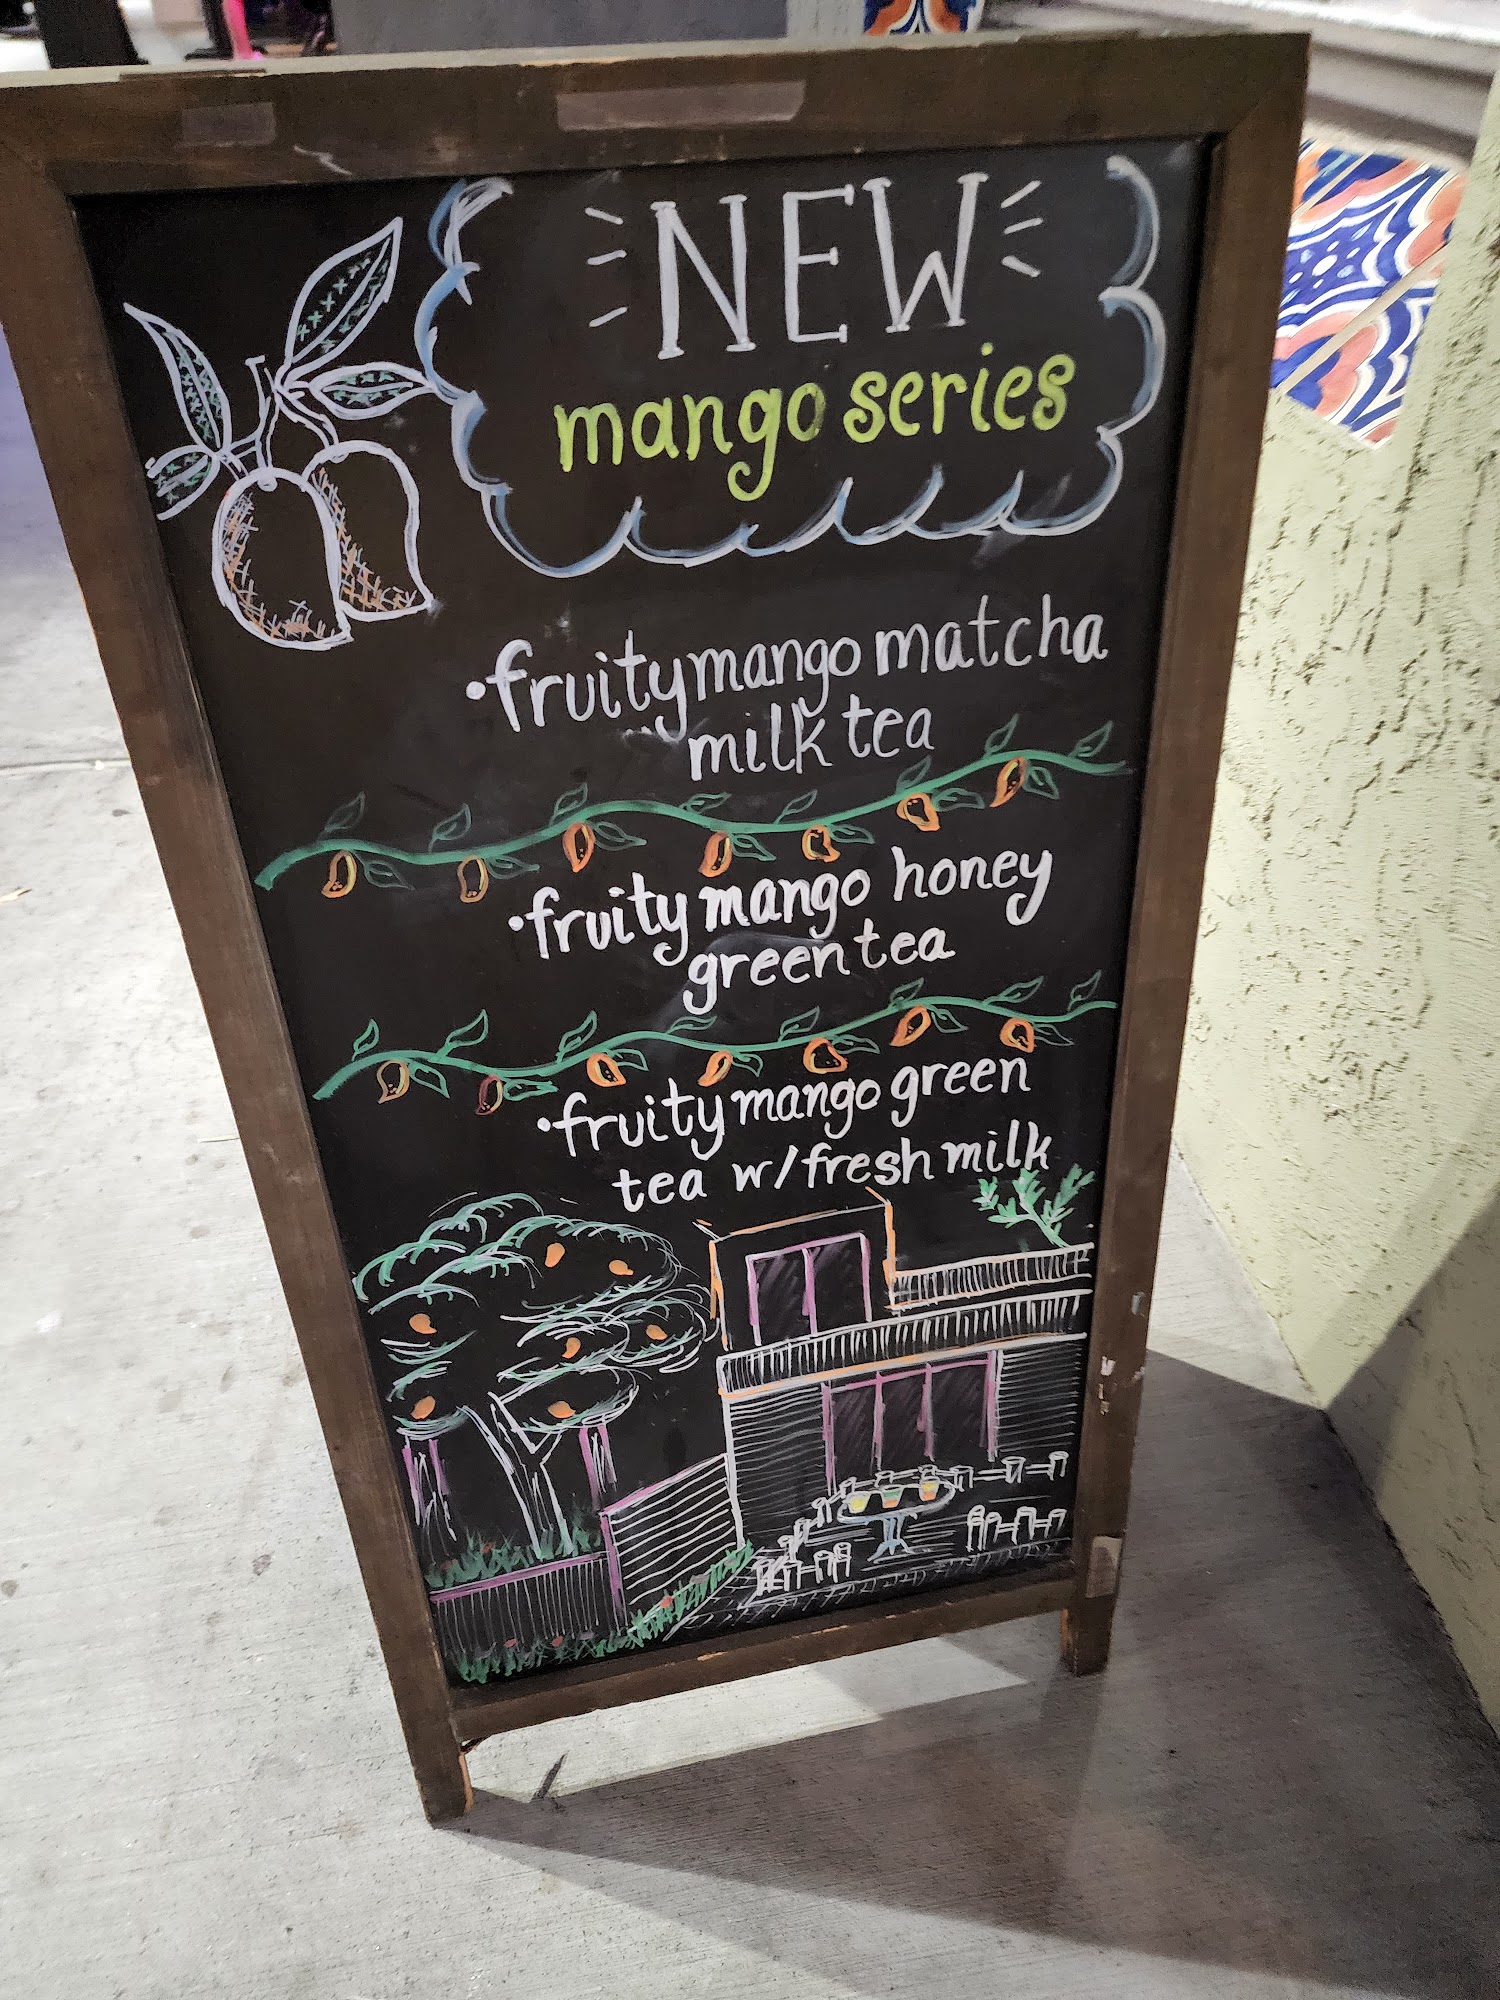 NEW
mango series
•fruity mango matcha
milk tea
•fruity mango honey
green tea
•fruity mango green
tea w/fresh milk